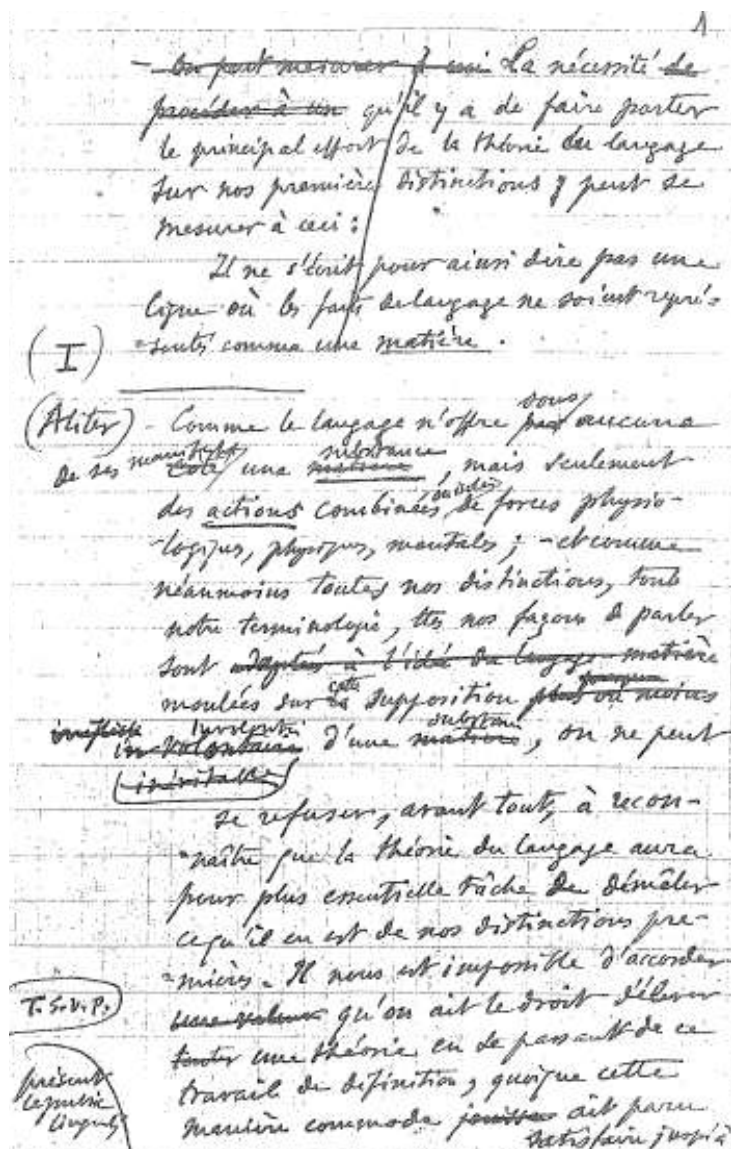 1
- On peut mesurer La nécessité de
procéder à un qu'il y a de faire porter
le principal effort de la théorie du langage
sur nos premières distinctions peut se
mesurer à ceci :
Il ne s'écrit pour ainsi dire pas une
ligne où les faits de langage ne soient repré-
=sentés comme une matière.
(I)
(Aliter) - Comme le langage n'offre pas sous aucune
de ses manifest. côté une matière substance, mais seulement
des actions combinées de forces physio-
-logiqus, physiqus, mentales ; - et comme
néanmoins toutes nos distinctions, toute
notre terminologie, ttes nos façons de parler
sont adaptées à l'idée du langage matière
moulées sur cette supposition plus ou moins
involontaire d'une matière substance, on ne peut
(inévitable)
se refuser, avant tout, à recon-
=naître que la théorie du langage aura
pour plus essentielle tâche de démêler
ce qu'il en est de nos distinctions pre-
=mières. Il nous est impossible d'accorder
une valeur qu'on ait le droit d'élever
une théorie en se passant de ce
travail de définition, quoique cette
manière commode ait paru
satisfaire jusqu'à
T.S.V.P.
présent
le public
linguist